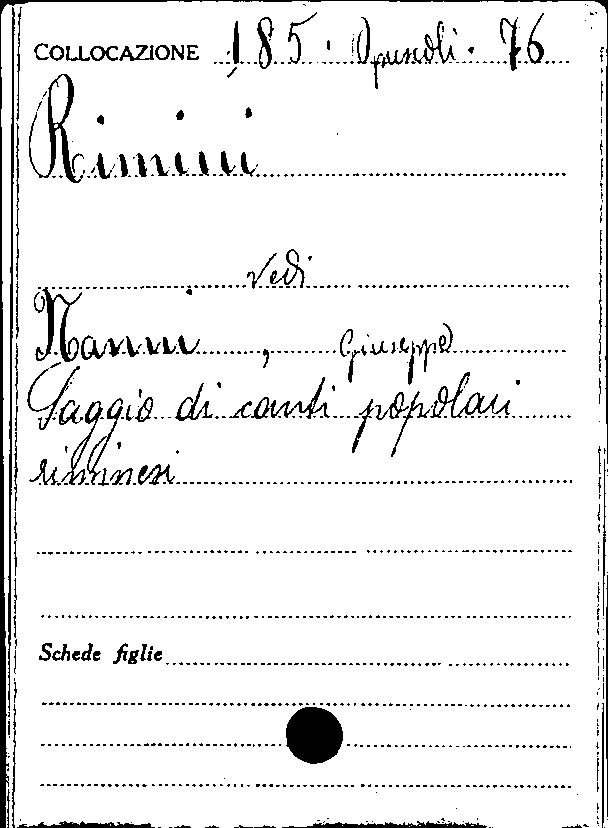 COLLOCAZIONE 185. Opuscoli. 76
Rimini
vedi
Nanni, Giuseppe
Saggio di canti popolari
riminesi
Schede figlie